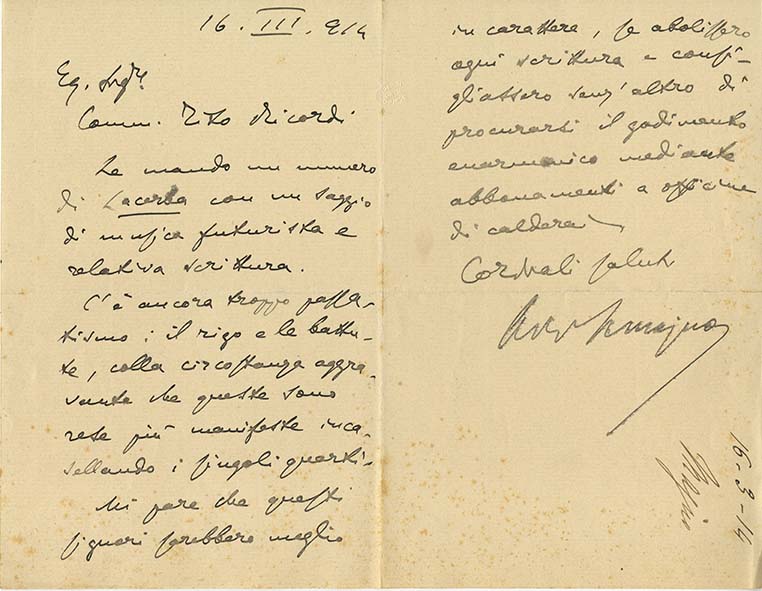 16. III. 914
Eg. Sigre
Comm. Tito Ricordi
Le mando un numero
di Lacerba con un saggio
di musica futurista e
relativa scrittura.
C'è ancora troppo passa-
tismo: il rigo e le battu-
te, colla circostanza aggra-
vante che queste sono
rese più manifeste inca-
sellando i singoli quarti-
Mi pare che questi
signori farebbero meglio
in carattere, se abolissero
ogni scrittura e consi-
gliassero senz'altro di
procurarsi il godimento
enarmonico mediante
abbonamenti a officine
di calderai
Cordiali saluti
16-3-14